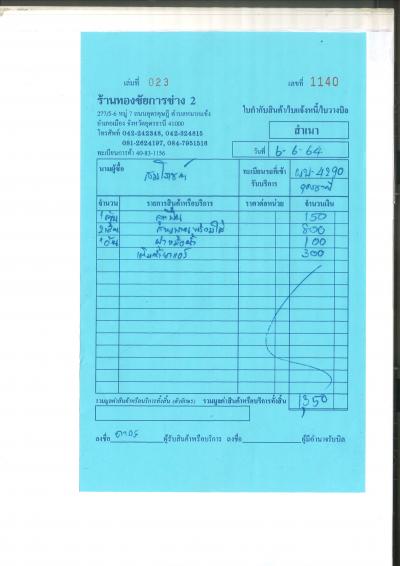 เล่มที่ 023 เลขที่ 1140
ร้านทองชัยการช่าง 2
277/5-6 หมู่ 7 ถนนอุดรดุษฎี ตำบลหมากแข้ง
อำเภอเมือง จังหวัดอุดรธานี 41000
โทรศัพท์ 042-242348, 042-324815
081-2624197, 084-7951516
ทะเบียนการค้า 40-83-1156
ใบกำกับสินค้า/ใบแจ้งหนี้/ใบวางบิล
สำเนา
วันที่ 6-6-64
นามผู้ซื้อ ทะเบียนรถที่เข้ารับบริการ 4290
อุดรธานี
จำนวน รายการสินค้าหรือบริการ ราคาต่อหน่วย จำนวนเงิน
150
800
1 อัน ฝาหม้อน้ำ 100
เติมน้ำยาแอร์ 300
รวมมูลค่าสินค้าหรือบริการทั้งสิ้น (ตัวอักษร) รวมมูลค่าสินค้าหรือบริการทั้งสิ้น 1,350
ลงชื่อ ผู้รับสินค้าหรือบริการ ลงชื่อ ผู้มีอำนาจรับบิล